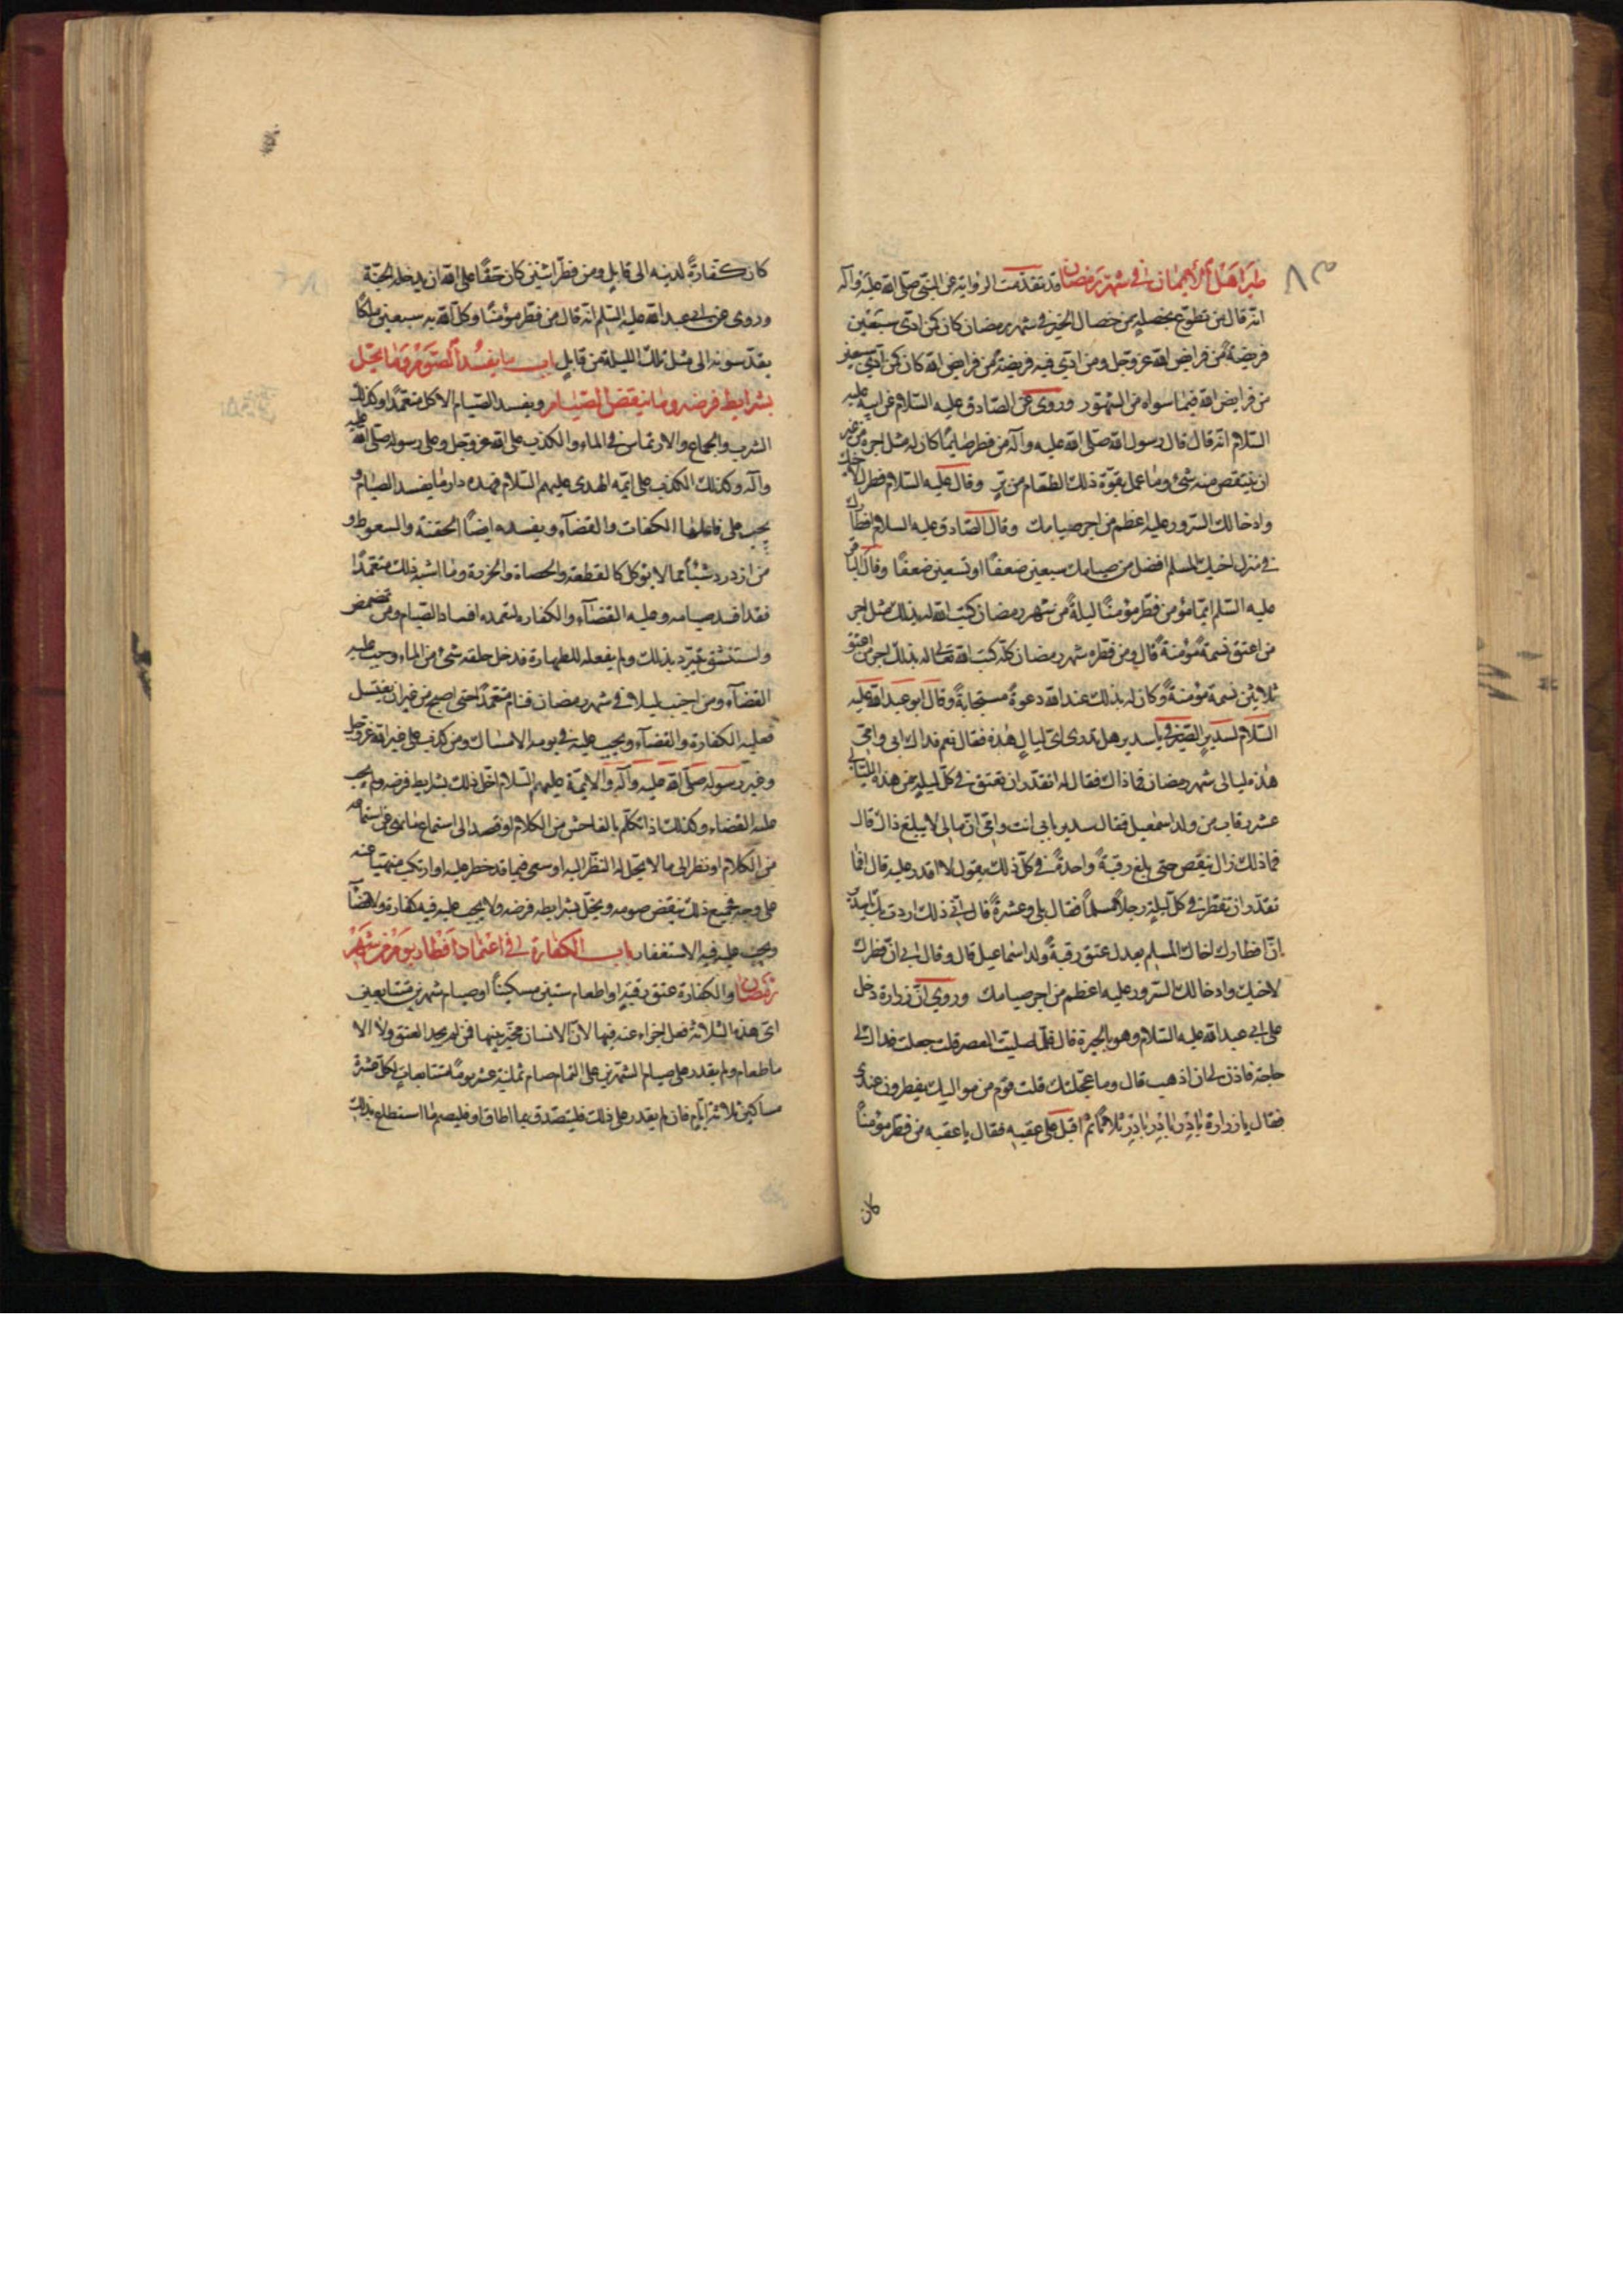 طير اهل الايمان في شهر رمضان قد تقدمت الرواية عن النبي صلى الله عليه وآله
انه قال من تطوع بخصلة من خصال الخير في شهر رمضان كان كمن ادى سبعين
فريضة من فرايض الله عز وجل ومن ادى فيه فريضة من فرايض الله كان كمن ادى سبعين
من فرايض الله فيما سواه من الشهور وروى عن الصادق عليه السلام عن ابيه عليه
السلام انه قال قال رسول الله صلى الله عليه وآله من فطر صايما كان له مثل اجره من غير
ان ينتقص منه شئ وما عمل بقوة ذلك الطعام من بر وقال عليه السلام فطرك لاخيك
وادخالك السرور عليه اعظم من اجر صيامك وقال الصادق عليه السلام افطارك
في منزل اخيك المسلم افضل من صيامك سبعين ضعفا او تسعين ضعفا وقال الباقر
عليه السلم ايما مؤمن فطر مؤمنا ليلة من شهر رمضان كتب الله له بذلك مثل اجر
من اعتق نسمة مؤمنة قال ومن فطره شهر رمضان كله كتب الله تعالى له بذلك اجر من اعتق
ثلاثين نسمة مؤمنة وكان له بذلك عند الله دعوة مستجابة وقال ابو عبد الله عليه
السلام لسدير الصيرفي يا سدير هل تدرى اى ليال هذه فقال نعم فداك ابي وامي
هذه ليالى شهر رمضان فما ذاك فقال له اتقدر ان تعتق في كل ليلة من هذه الليالي
عشر رقاب من ولد اسمعيل فقال سدير بابي انت وامي ان مالي لا يبلغ ذاك قال
فما ذلك زال ينقص حتى بلغ رقبة واحدة في كل ذلك يقول لا اقدر عليه قال افما
تقدر ان تفطر في كل ليلة رجلا مسلما فقال بلى وعشرة قال اني ذلك اردت بك يا سدير
ان افطارك اخاك المسلم يعدل عتق رقبة ولد اسماعيل قال وقال لي ان فطرك
لاخيك وادخالك السرور عليه اعظم من اجر صيامك وروي ان زرارة دخل
على ابي عبد الله عليه السلام وهو بالحيرة قال فلما صليت العصر قلت جعلت فداك لي
حاجة فاذن لي ان اذهب قال وما عجلتك قلت قوم من مواليك يفطرون عندى
فقال يا زرارة بادر بادر بادر ثلاثا ثم اقبل على عقبه فقال يا عقبه من فطر مؤمنا
كان
كان كفارة لذنبه الى قابل ومن فطر اثنين كان حقا على الله ان يدخله الجنة
وروى عن ابي عبد الله عليه السلم انه قال من فطر مؤمنا وكل الله به سبعين ملكا
يقدسونه الى مثل تلك الليلة من قابل باب ما يفسد الصوم وما يخل
بشرايط فرضه وما ينقض الصيام ويفسد الصيام الاكل متعمدا وكذلك
الشرب والجماع والارتماس في الماء والكذب على الله عز وجل وعلى رسوله صلى الله عليه
وآله وكذلك الكذب على ائمة الهدى عليهم السلام فهذه دار ما يفسد الصيام و
يجب على فاعلها الكفات والقضآء ويفسده ايضا الحقنة والسعوط و
من ازدرد شيئا مما لا يؤكل كالقطعة والحصاة والخرزة وما اشبه ذلك متعمدا
فقد افسد صيامه وعليه القضاء والكفاره لتعمده افساد الصيام ومن تمضمض
واستنشق تبرد بذلك ولم يفعله للطهارة فدخل حلقه شئ من الماء وجب عليه
القضآء ومن اجنب ليلا في شهر رمضان فنام متعمدا حتى اصبح من غير ان يغتسل
فعليه الكفارة والقضآء ويجب عليه في يومه الامساك ومن كذب على غير الله عز وجل
وغير رسوله صلى الله عليه وآله والايمة عليهم السلام اخل ذلك بشرايط فرضه ولم يجب
عليه القضاء وكذلك اذا تكلم بالفاحش من الكلام او قصد الى استماع ما نهى عن استماعه
من الكلام او نظر الى ما لا يحل له النظر اليه او سعى فيما قد حظر عليه او ارتكب منهيا عنه
على وجه فجميع ذلك ينقض صومه ويخل بشرايط فرضه ولا يجب عليه فيه كفارة ولا قضآ
ويجب عليه فيه الاستغفار باب الكفارة في اعتماد افطار يوم من شهر
رمضان والكفارة عتق رقبة او اطعام ستين مسكينا او صيام شهرين متتابعين
اى هذه الثلاثة فعل اجزاء عنه فيها لان الانسان مخير بينها فمن لم يجد العتق ولا الا
ماطعام ولم يقدر على صيام الشهرين على التمام صام ثمانية عشر يوما متتابعات لكل عشرة
مساكين ثلاثة ايام فان لم يقدر على ذلك فليتصدق بما اطاق او فليصم ما استطاع بذلك